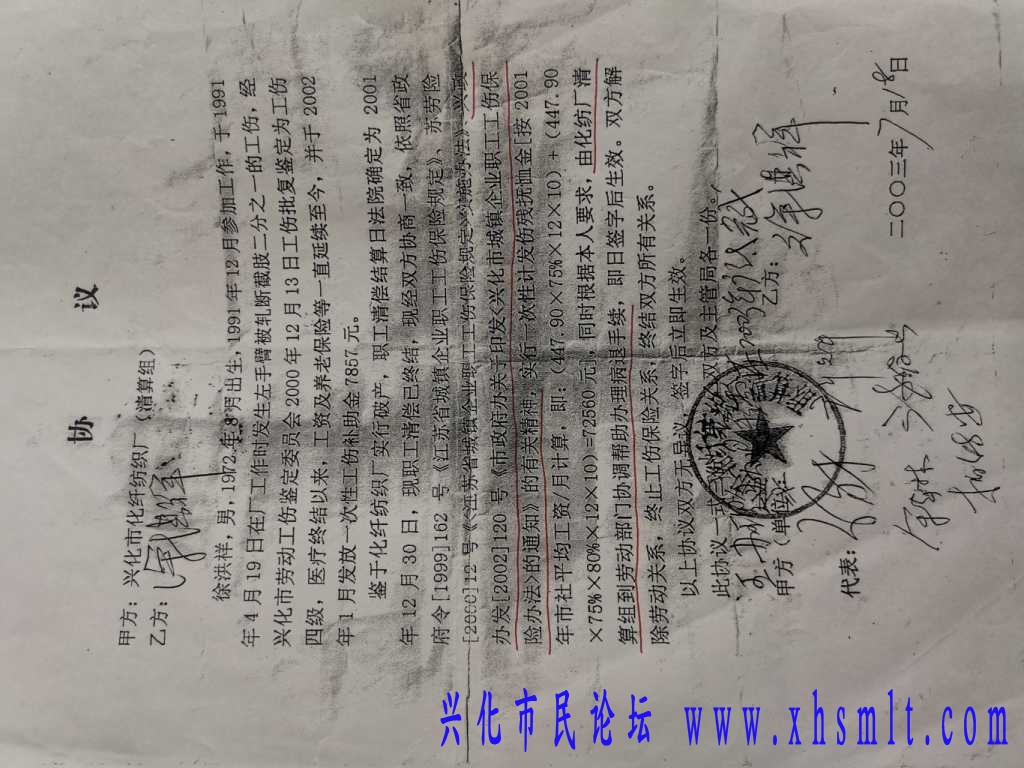 协 议
甲方：兴化市化纤纺织厂（清算组）
乙方：徐洪祥
徐洪祥，男，1972年8月出生，1991年12月参加工作，于1991
年4月19日在厂工作时发生左手臂被轧断截肢二分之一的工伤，经
兴化市劳动工伤鉴定委员会2000年12月13日工伤批复鉴定为工伤
四级，医疗终结以来，工资及养老保险等一直延续至今，并于2002
年1月发放一次性工伤补助金7857元。
鉴于化纤纺织厂实行破产，职工清偿结算日法院确定为2001
年12月30日，现职工清偿已终结，现经双方协商一致，依照省政
府令[1999]162号《江苏省城镇企业职工工伤保险规定》、苏劳险
[2000]12号《《江苏省城镇企业职工工伤保险规定》实施办法》兴政
办发[2002]120号《市政府办关于印发<兴化市城镇企业职工工伤保
险办法>的通知》的有关精神，实行一次性计发伤残抚恤金[按2001
年市社平均工资/月计算，即：（447.90×75%×12×10）+（447.90
×75%×80%×12×10）=72560元，同时根据本人要求，由化纺厂清
算组到劳动部门协调帮助办理病退手续，即日签字后生效。双方解
除劳动关系，终止工伤保险关系，终结双方所有关系。
以上协议双方无异议，签字后立即生效。
此协议一式 双方及主管局各一份。
甲方（单位）： 乙方：徐洪祥
代表：
二〇〇三年7月18日
兴化市民论坛 www.xhsmlt.com